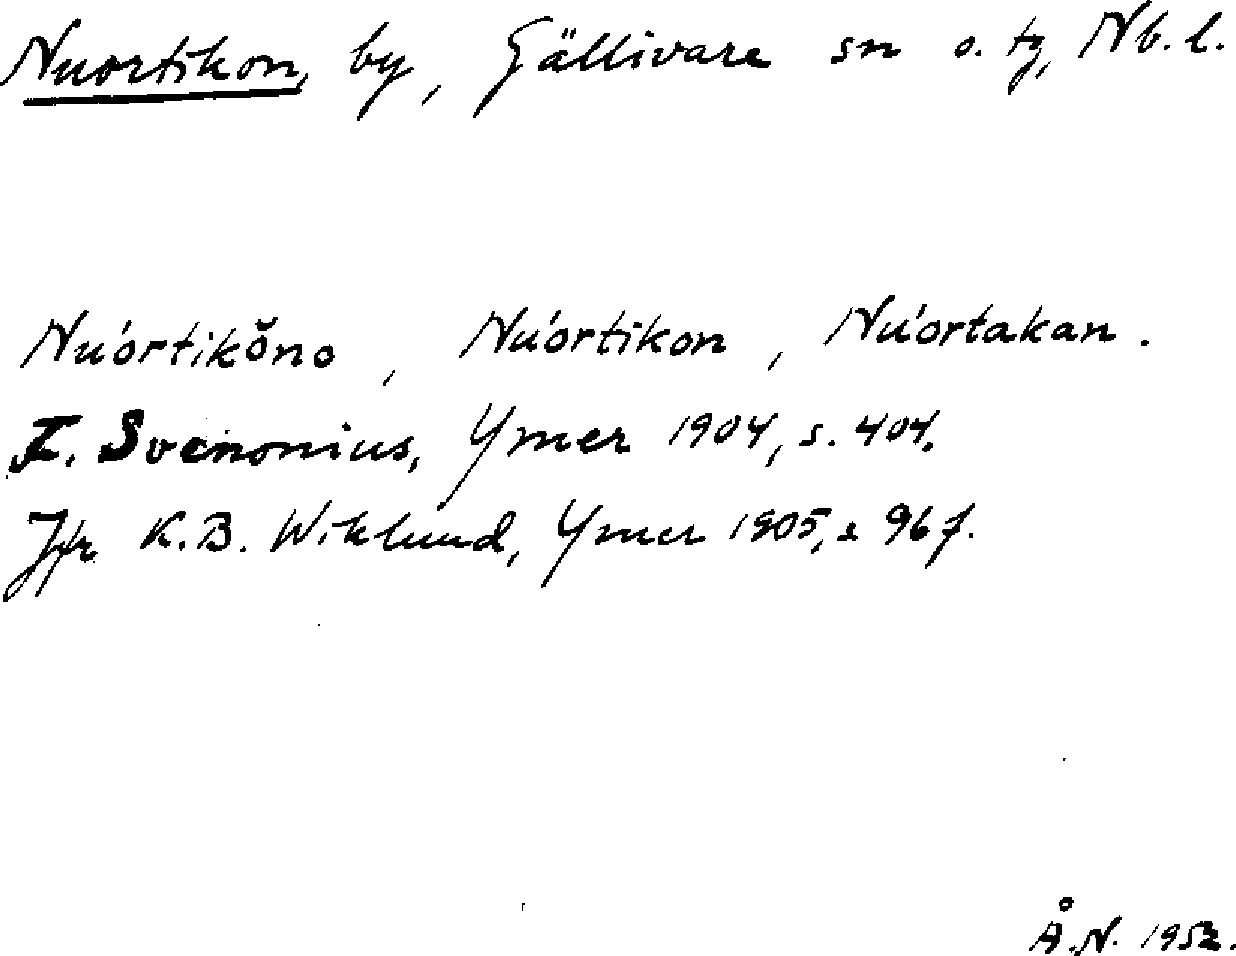 Nuortikon, by, Gällivare sn o. tg, Nb. l.
Nu'órtikŏno, Nu'órtikon, Nu'ortakan.
F. Svenonius, Ymer 1904, s. 404.
Jfr K.B. Wiklund, Ymer 1905, s 96 f.
Å.N. 1952.